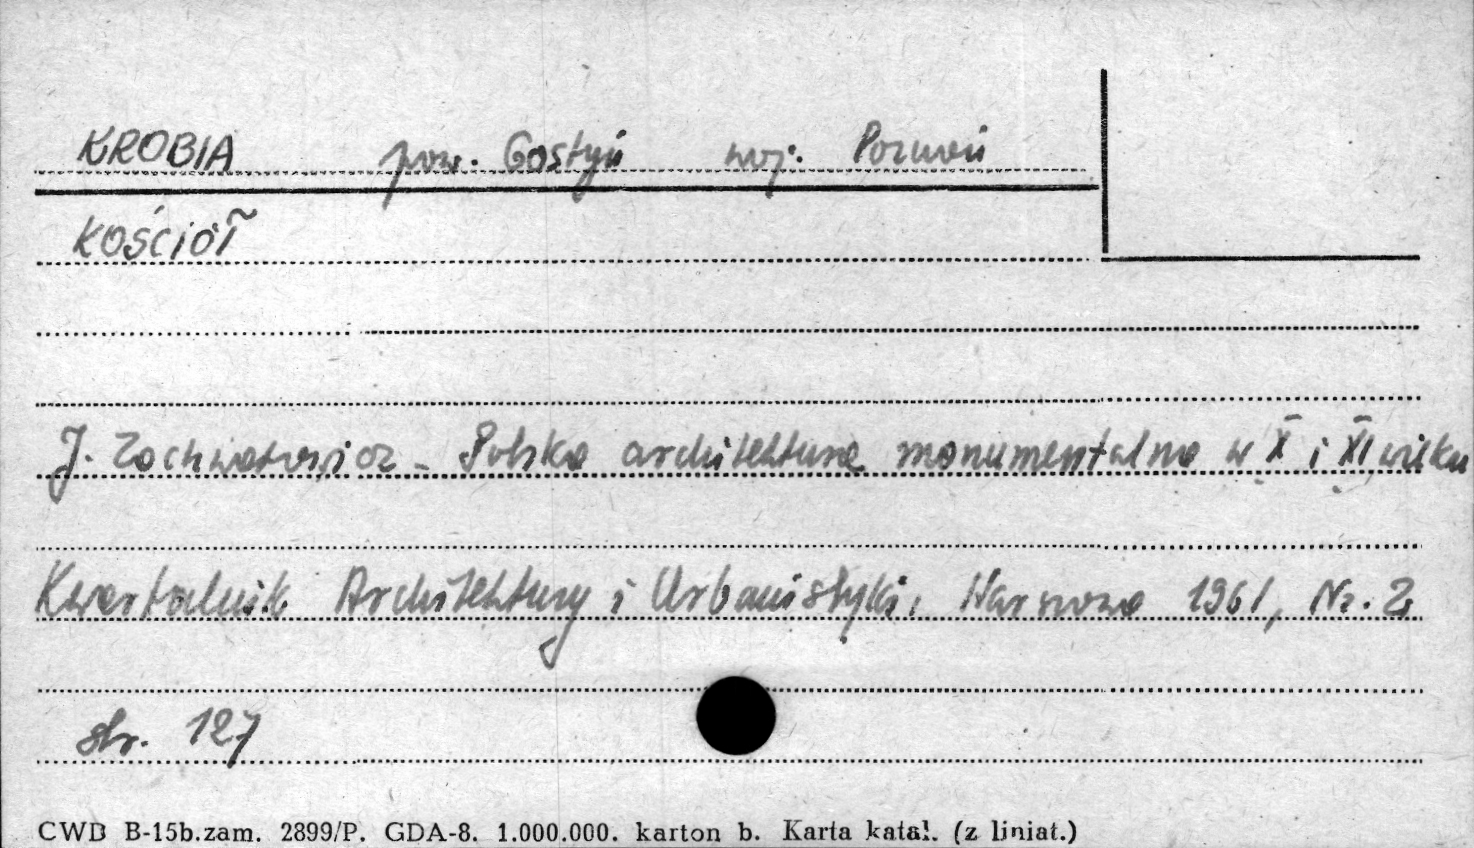 KROBIA pow. Gostyń woj. Poznań
KOŚCIÓŁ
J. Zachwatowicz - Polska architektura monumentalna w X i XI wieku
Kwartalnik Architektury i Urbanistyki, Warszawa 1961, Nr. 2,
str. 127
CWD B-15b.zam. 2899/P. GDA-8. 1.000.000. karton b. Karta katal. (z liniat.)